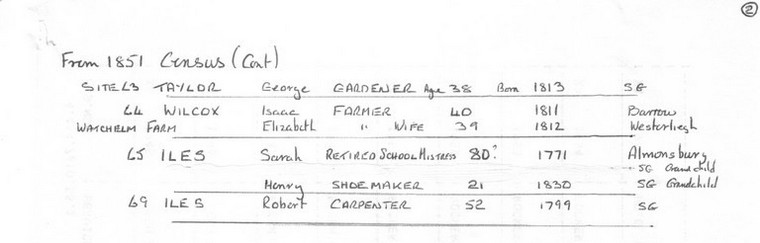 2
From 1851 Census (Cont)
SITE 63 TAYLOR George GARDENER Age 38 Born 1813 SG
64 WILCOX Isaac FARMER 40 1811 Barrow
WATCHELM FARM Elizabeth " WIFE 39 1812 Westerliegh
65 ILES Sarah RETIRED SCHOOL MISTRESS 80? 1771 Almonsbury
SG Grandchild
Henry SHOEMAKER 21 1830 SG Grandchild
69 ILES Robert CARPENTER 52 1799 SG